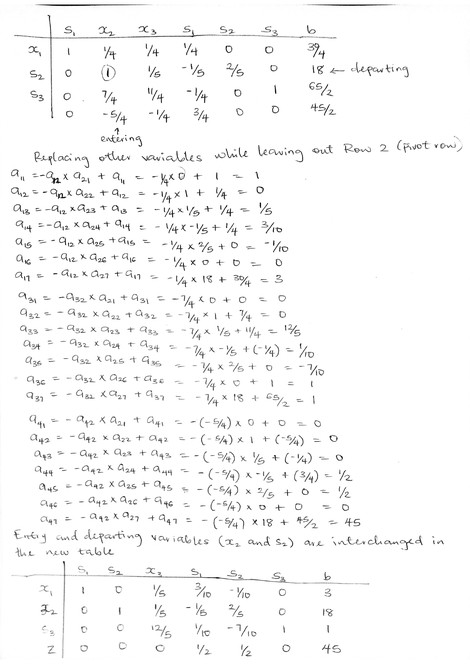 S₁ x₂ x₃ S₁ S₂ S₃ b
x₁ 1 1/4 1/4 1/4 0 0 39/4
S₂ 0 1 1/5 -1/5 2/5 0 18 ← departing
S₃ 0 7/4 11/4 -1/4 0 1 65/2
0 -5/4 -1/4 3/4 0 0 45/2
↑
entering
Replacing other variables while leaving out Row 2 (pivot row)
a₁₁ = -a₁₂ x a₂₁ + a₁₁ = -1/4 x 0 + 1 = 1
a₁₂ = -a₁₂ x a₂₂ + a₁₂ = -1/4 x 1 + 1/4 = 0
a₁₃ = -a₁₂ x a₂₃ + a₁₃ = -1/4 x 1/5 + 1/4 = 1/5
a₁₄ = -a₁₂ x a₂₄ + a₁₄ = -1/4 x -1/5 + 1/4 = 3/10
a₁₅ = -a₁₂ x a₂₅ + a₁₅ = -1/4 x 2/5 + 0 = -1/10
a₁₆ = -a₁₂ x a₂₆ + a₁₆ = -1/4 x 0 + 0 = 0
a₁₇ = -a₁₂ x a₂₇ + a₁₇ = -1/4 x 18 + 30/4 = 3
a₃₁ = -a₃₂ x a₂₁ + a₃₁ = -7/4 x 0 + 0 = 0
a₃₂ = -a₃₂ x a₂₂ + a₃₂ = -7/4 x 1 + 7/4 = 0
a₃₃ = -a₃₂ x a₂₃ + a₃₃ = -7/4 x 1/5 + 11/4 = 12/5
a₃₄ = -a₃₂ x a₂₄ + a₃₄ = -7/4 x -1/5 + (-1/4) = 1/10
a₃₅ = -a₃₂ x a₂₅ + a₃₅ = -7/4 x 2/5 + 0 = -7/10
a₃₆ = -a₃₂ x a₂₆ + a₃₆ = -7/4 x 0 + 1 = 1
a₃₇ = -a₃₂ x a₂₇ + a₃₇ = -7/4 x 18 + 65/2 = 1
a₄₁ = -a₄₂ x a₂₁ + a₄₁ = -(-5/4) x 0 + 0 = 0
a₄₂ = -a₄₂ x a₂₂ + a₄₂ = -(-5/4) x 1 + (-5/4) = 0
a₄₃ = -a₄₂ x a₂₃ + a₄₃ = -(-5/4) x 1/5 + (-1/4) = 0
a₄₄ = -a₄₂ x a₂₄ + a₄₄ = -(-5/4) x -1/5 + (3/4) = 1/2
a₄₅ = -a₄₂ x a₂₅ + a₄₅ = -(-5/4) x 2/5 + 0 = 1/2
a₄₆ = -a₄₂ x a₂₆ + a₄₆ = -(-5/4) x 0 + 0 = 0
a₄₇ = -a₄₂ x a₂₇ + a₄₇ = -(-5/4) x 18 + 45/2 = 45
Entry and departing variables (x₂ and S₂) are interchanged in
the new table
S₁ S₂ x₃ S₁ S₂ S₃ b
x₁ 1 0 1/5 3/10 -1/10 0 3
x₂ 0 1 1/5 -1/5 2/5 0 18
S₃ 0 0 12/5 1/10 -7/10 1 1
Z 0 0 0 1/2 1/2 0 45